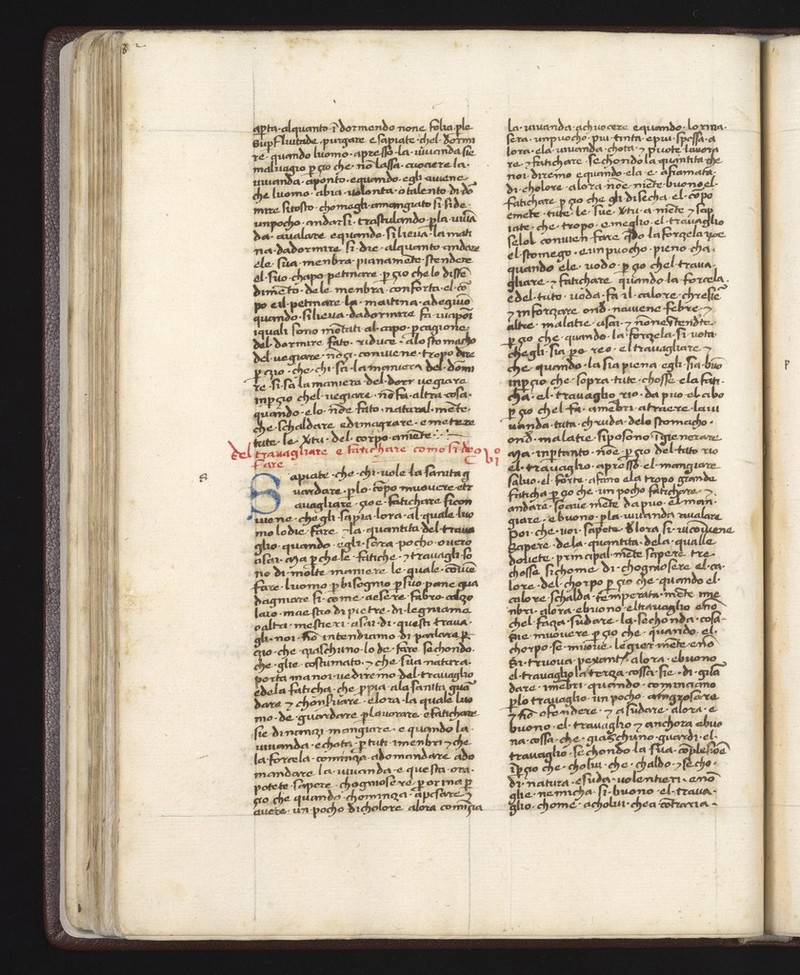 apta · alquanto · ī dormendo none folia ple
supfluitade purgare e sapiate · chel · dormi
re · quando luomo · apresso · la · uiuanda sie
maluagio p çio che · nō lassa · cuocere la ·
uiuanda · aponto · equando · egli auene ·
che luomo · abia · uolonta · o talento di do
mire sitosto · chomagli · amangiato si side ·
unpocho · andarsi · trastulando · pla · uiua
da · aualare equando · si lieua · la mati
na · dadormire · si die · alquanto andare
ele · sua · menbra · pianamēte · stendere
el · suo · chapo · petinare · p çio che lo disse
dimēto · dele menbra · conforta · el · co
po e il petinare · la · matina · adequio
quando · si lieua · dadormire fa · uapori
i quali sono mōtati al · capo · p cagione
del · dormire fato · riduce · alo stomacho
del · uegiare · nō çi · conuiene · tropo dire
p çio · che · chi · sa · la maniera · del · dormi
re · si · sa la maniera · del · uegiare
inp çio chel · uegiare · nō fa · altra · cosa ·
quando · elo · nōe fato · natural · mēte ·
che · schaldare edimagrare · emetere
tute · le · xtu · del · corpo · amēte ·
del trauagliare e fatichare como si de
fare
8
Sapiate · che · chi · uole · la sanita g
uardare · plo · cōpo muouere etr
auagliare · çioe · fatichare si con
uiene · che gli · sapia · lora · al · quale luo
mo lo die · fare · 7 la · quantita · del · traua
glio · quando · egli · sera · pocho · ouero
asai · ma p che le · fatiche · 7 trauagli · so
no di · molte · maniere · le quale · conuie
fare · luomo · p bisogno · p suo · pane · gua
dagniare · si · come · aesere · fabro · calço
laio · maestro di pietre · di · legniame
o altri · mestieri · asai · di · questi · traua
gli · noi · nō intendiamo · di parlare p
çio · che · quaschuno · lo de · fare · sechondo ·
che · glie · costumato · 7 che · sua · natura ·
porta · ma noi · ue diremo del · trauaglio
e dela faticha · che · p pia · ala sanita · gua
dare · 7 chonsuare · e lora · la quale luo
mo · de · guardare · plauorare · o fatichare
sie · dinançi · mangiare · e quando · la ·
uiuanda · echota · p tuti · imenbri · 7 che ·
la · forcela · comincia · adomandare · ado
mandare · la · uiuanda · e questa · ora ·
potete · sapere · chognosere · p orina p
çio che quando · chominça · apesare
auere · un · pocho · dicholore alora · comiça
la · uiuanda · achuocere equando · lorina ·
sera · unpocho · piu · tinta · epiu · spessa · a
lora · ela · uiuanda · chota · 7 puote lauora
re · 7 fatichare · sechondo la quantita che
noi · diremo equando · ela e · afiamata ·
di · cholore · alora · nōe · miete · buono el ·
fatichare p çio che gli disecha · el · cōpo
emete · tute · le · sue · xtu · a · mēte · 7 sap
iate · che · tropo · e meglio · el · trauaglio
el · stomego · e unpuocho · pieno cha ·
quando · ele · uodo · p çio · chel · traua ·
gliare · 7 fatichare · quando · la · forcela ·
e del · tuto · uoda · fa · il · calore · chresie
7 inforçare · ond · nauene · febre · 7
altre · malatie · asai · 7 nōne
p çio · che · quando · la · forcela · si · uota ·
chegli · sia · po · reo · el trauagliare 7
che · quando · la sia piena · egli · sia · buo
inp çio · che · sopra · tute · chosse · ela fati
cha · el · trauaglio · rio · da puo · el cibo
p çio · chel · fa · amēbri · atraere · la ui
uanda · tuta · chruda · delo stomacho ·
ond · malatie · siposono · ī generare
Ma · inptanto · nōe · p çio · del · tuto · rio
el · trauaglio · apresso · el · mangiare
saluo · el · forte · afano ela tropo grande
faticha · p çio · che · un · pocho fatichare · 7
andare · soaue mēte · da puo · el man
giare · ebuono · pla · uiuanda auualare
poi · che · uoi · sapete · lora · si · uicouiene
sapere · dela · quantita · dela · qualle
douete · principal · mēte sapere tre ·
chosse si chome · di · chognosere · el · ca
lore · del · chorpo · p çio · che · quando · el
calore · schalda · temperata · mēte · ime
nbri · alora · ebuono · el trauaglio eno
chel · faça · sudare · la sechonda · cosa ·
sie · muouere · p çio · che · quando · el ·
chorpo · se · muoue · legier · mēte · eno
si · truoua · pexante alora · ebuono
el · trauaglio · la · terça · cossa · sie · di · gua
dare · imēbri · quando · cominciano
plo · trauaglio · unpocho · aingrosare
7 si · stendere · 7 asudare · alora · e
buono · el · trauaglio 7 anchora · ebuo
na · cossa · che · quaschuno · guardi · el ·
trauaglio · sechondo · la · sua · cōplesiōe
īp çio · che · cholui · che · chaldo · 7 secho ·
di · natura · esuda · uolentieri · eno
glie · nemicha · si · buono · el · traua ·
glio · chome · acholui · che a cōtraria